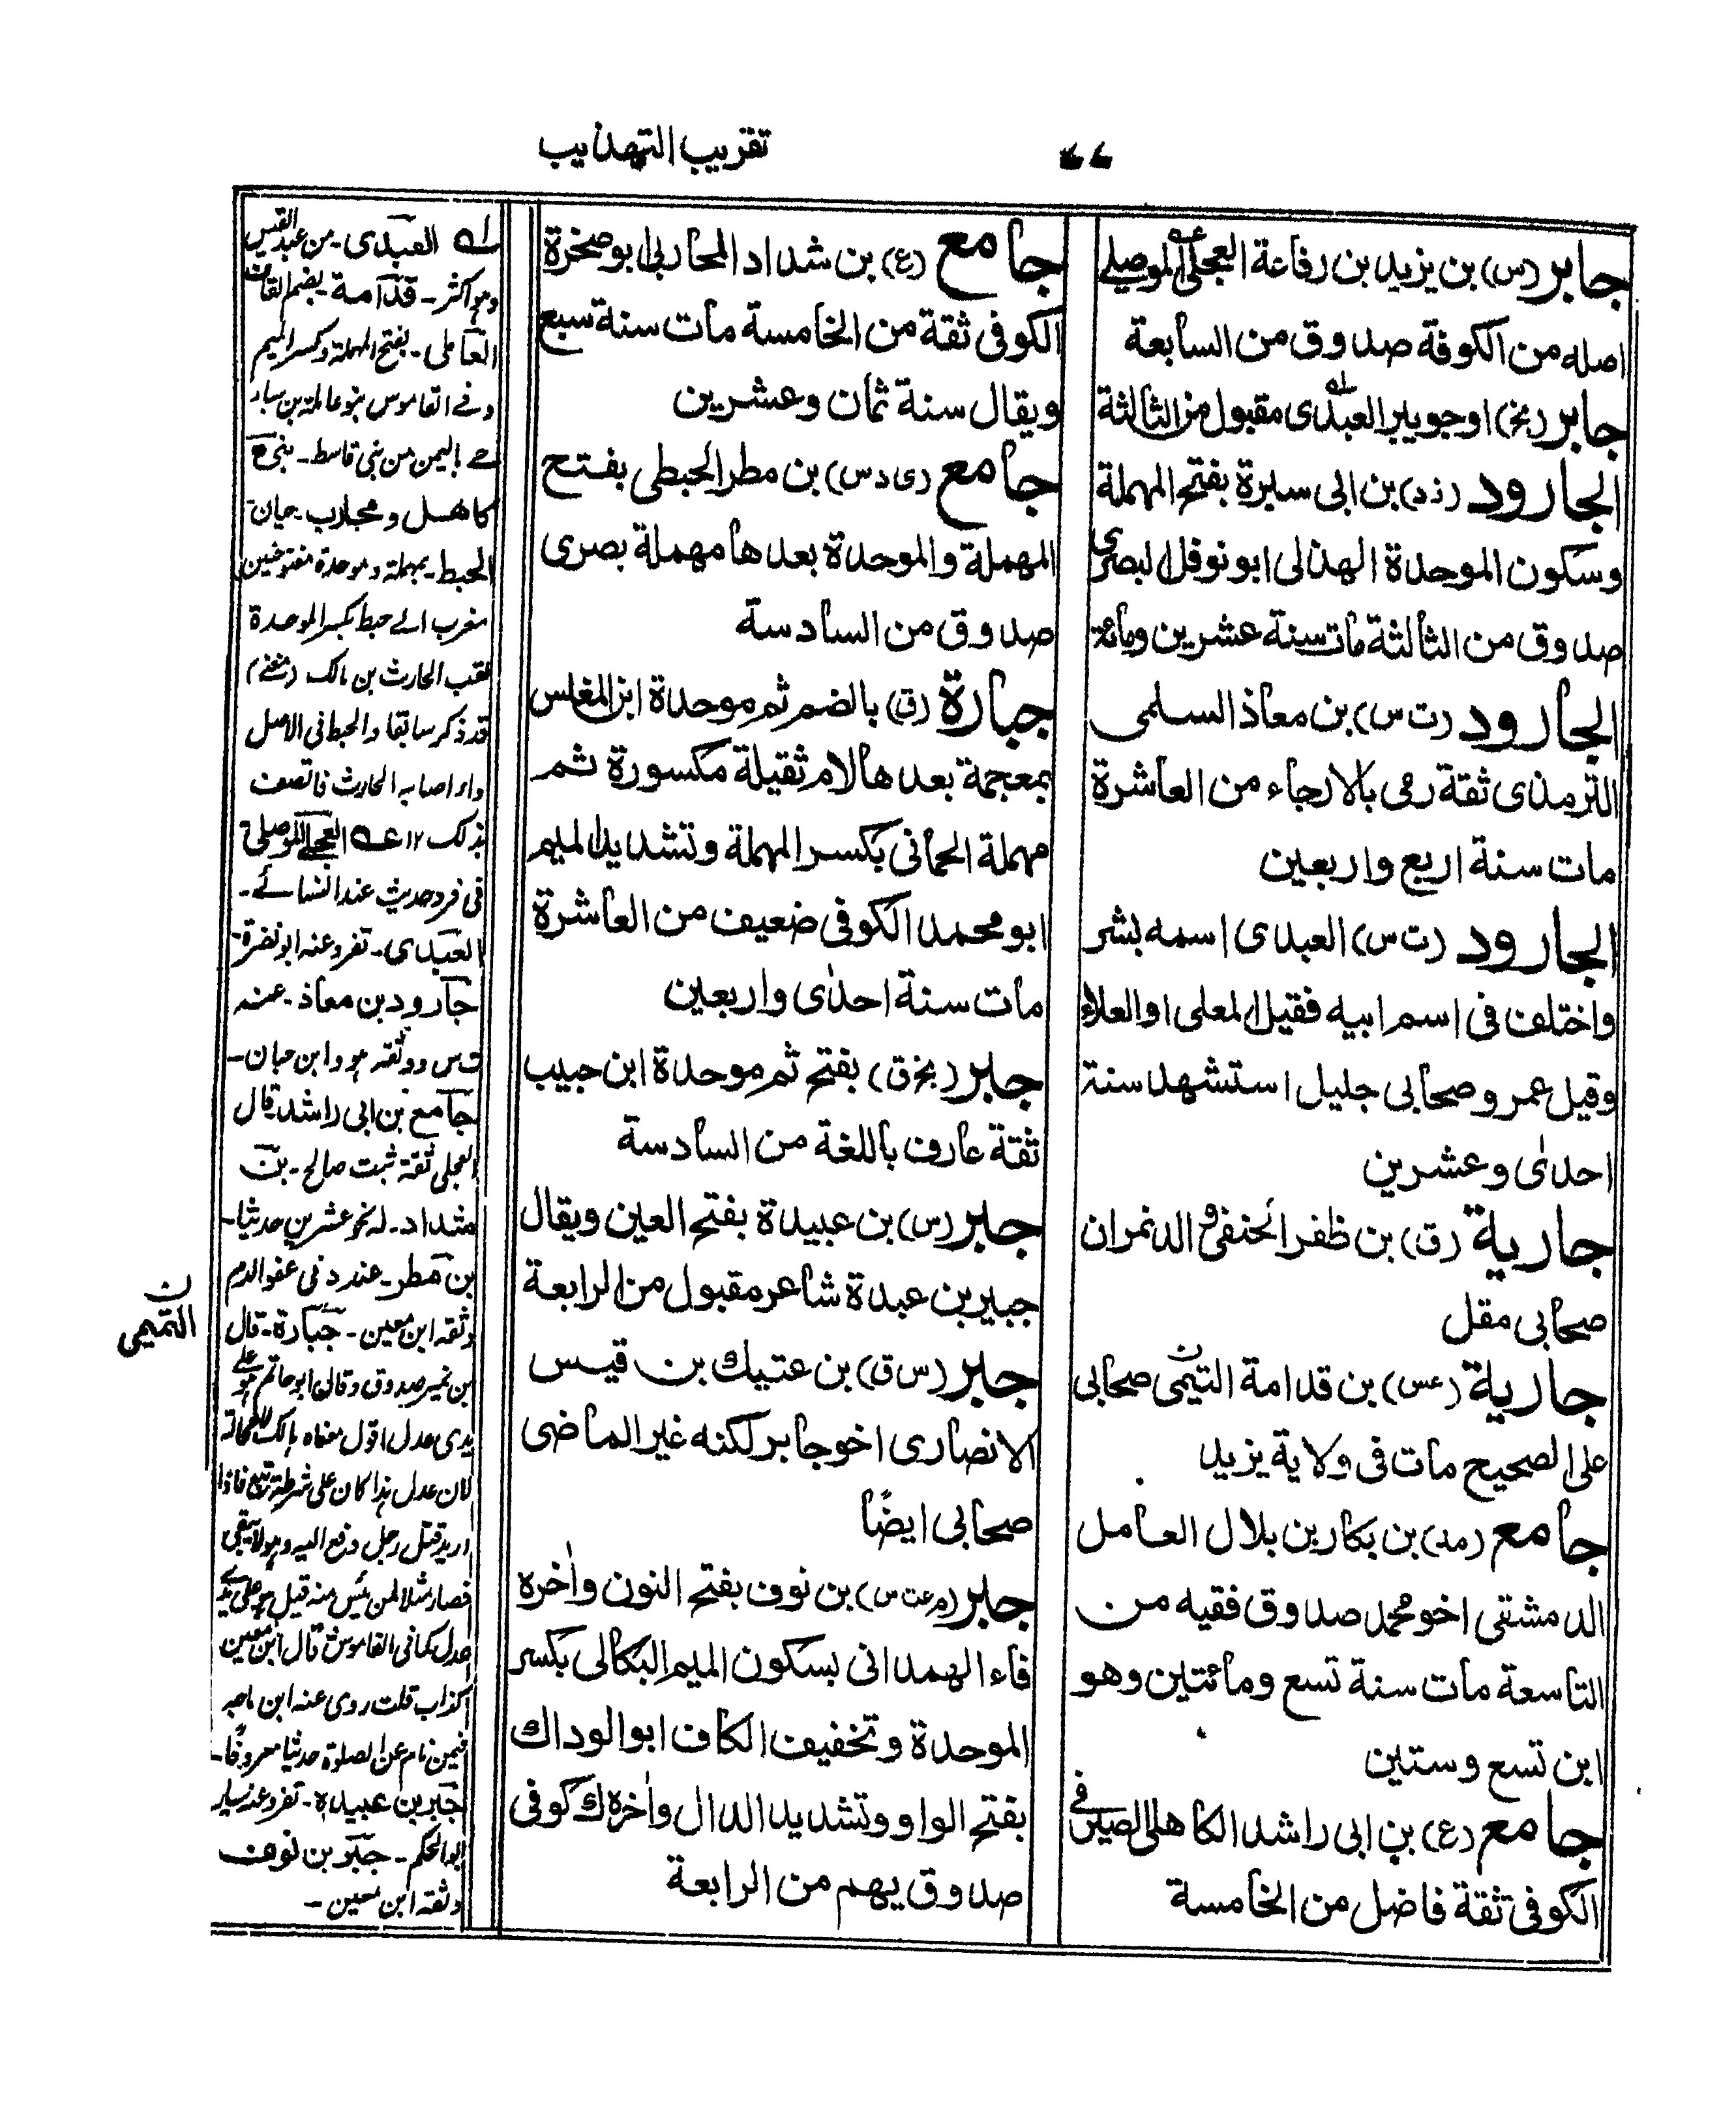 تقريب التهذيب
جابر (س) بن يزيد بن رفاعة العجلى الموصلى
اصله من الكوفة صدوق من السابعة
جابر (بخ) اوجويبر العبدى مقبول من الثالثة
الجارود (زد) بن ابى سبرة بفتح المهملة
وسكون الموحدة الهذلى ابو نوفل البصرى
صدوق من الثالثة مات سنة عشرين ومائة
الجارود (ت س) بن معاذ السلمى
الترمذى ثقة رمى بالارجاء من العاشرة
مات سنة اربع واربعين
الجارود (ت س) العبدى اسمه بشر
واختلف فى اسم ابيه فقيل المعلى او العلاء
وقيل عمر وصحابى جليل استشهد سنة
احدى وعشرين
جارية (ق) بن ظفر الحنفى والد نمران
صحابى مقل
جارية (عس) بن قدامة التيمى صحابى
على الصحيح مات فى ولاية يزيد
جامع (مد) بن بكار بن بلال العامل
الدمشقى اخو محمد صدوق فقيه من
التاسعة مات سنة تسع ومائتين وهو
ابن تسع وستين
جامع (ع) بن ابى راشد الكاهلى الصيرفى
الكوفى ثقة فاضل من الخامسة
جامع (ع) بن شداد المحاربى ابو صخرة
الكوفى ثقة من الخامسة مات سنة سبع
ويقال سنة ثمان وعشرين
جامع (ى د س) بن مطر الحبطى بفتح
المهملة والموحدة بعدها مهملة بصرى
صدوق من السادسة
جبارة (ق) بالضم ثم موحدة ابن المغلس
بمعجمة بعدها لام ثقيلة مكسورة ثم
مهملة الحمانى بكسر المهملة وتشديد الميم
ابو محمد الكوفى ضعيف من العاشرة
مات سنة احدى واربعين
جبر (بخ ق) بفتح ثم موحدة ابن حبيب
ثقة عارف باللغة من السادسة
جبر (س) بن عبيدة بفتح العين ويقال
جبير بن عبدة شاعر مقبول من الرابعة
جبر (س ق) بن عتيك بن قيس
الانصارى اخو جابر لكنه غير الماضى
صحابى ايضًا
جبر (م عت س) بن نوف بفتح النون وأخره
فاء الهمدانى بسكون الميم البكالى بكسر
الموحدة وتخفيف الكاف ابو الوداك
بفتح الواو وتشديد الدال وأخره ك كوفى
صدوق يهم من الرابعة
له العبدى - من عبد القيس
وهو اكثر - قدامة - بضم القاف
العاملى - بفتح المهملة وكسر الميم
وفى القاموس بنو عاملة بن سبا
حى باليمن من بنى قاسط -
كاهل ومحارب - حيان
الحبط - بمهملة وموحدة مفتوحتين
الحبط بكسر الموحدة
لقب الحارث بن مالك (مغنى)
قد ذكر سابقا والحبط فى الاصل
داء اصاب الحارث فاتصف
بذلك ١٢ عه العجلى الموصلى
فى فرد حديث عند النسائى -
العبدى - تفرد عنه ابو نضرة -
جارود بن معاذ - عنه
ت س ووثقه هو وابن حبان -
جامع بن ابى راشد قال
العجلى ثقة ثبت صالح - بن
شداد - له نحو عشرين حديثا -
بن مطر - عند د فى عفو الدم
وثقه ابن معين - جبارة - قال
بن نمير صدوق وقال ابو حاتم هو على
يدى عدل اقول معناه
لان عدل هذا كان على شرطة تبع فاذا
اريد قتل رجل دفع اليه
فصار مثلا لمن يئس منه قيل هو على يدى
عدل كما فى القاموس قال ابن معين
كذاب قلت روى عنه ابن ماجه
فيمن نام عن الصلوة حديثا معروفًا -
جبر بن عبيدة - تفرد عنه سيار
ابو الحكم - جبر بن نوف
وثقه ابن معين -
ن
التميمى